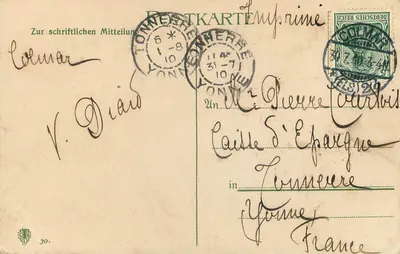 POSTKARTE
Imprimé
Zur schriftlichen Mitteilung
Colmar
V. Diard
TONNERRE
6 *
1-8
10
YONNE
TONNERRE
31-7
10
YONNE
DEUTSCHES REICH
COLMAR
30.7.10. 3-4N
(ELS) 2
An Mr Pierre Courtois
Caisse d'Epargne
in Tonnerre
Yonne
France
30.